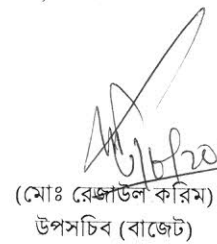 (মোঃ রেজাউল করিম)
উপসচিব (বাজেট)